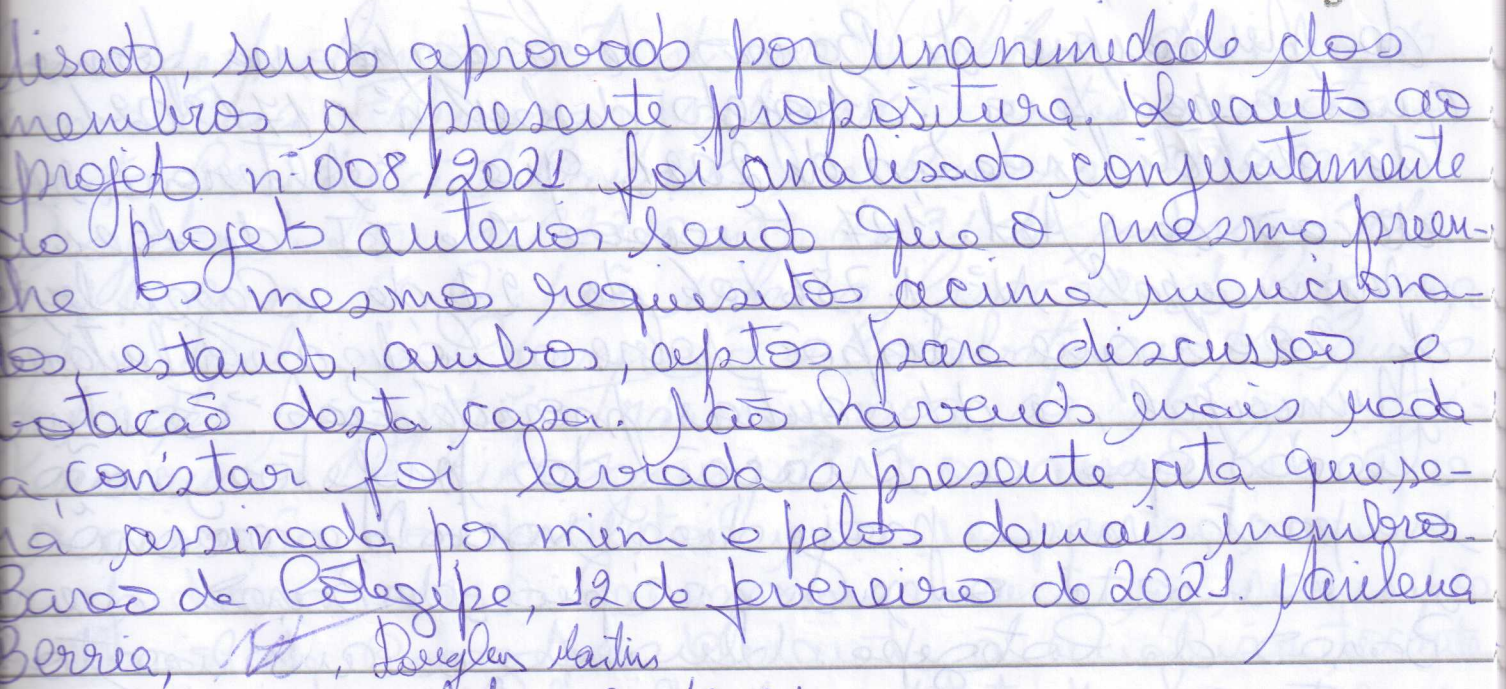 lisado, sendo aprovado por unanimidade dos
membros a presente propositura. Quanto ao
projeto nº 008/2021 foi analisado conjuntamente
ao projeto anterior sendo que o mesmo preen-
che os mesmos requisitos acima menciona-
os, estando, ambos, aptos para discussão e
votacaõ desta casa. Não havendo mais nada
a constar foi lavrada a presente ata que se-
rá assinada por mim e pelos demais membros.
Barão de Cotegipe, 12 de fevereiro de 2021. Marilena
Berria, , Douglas Martins